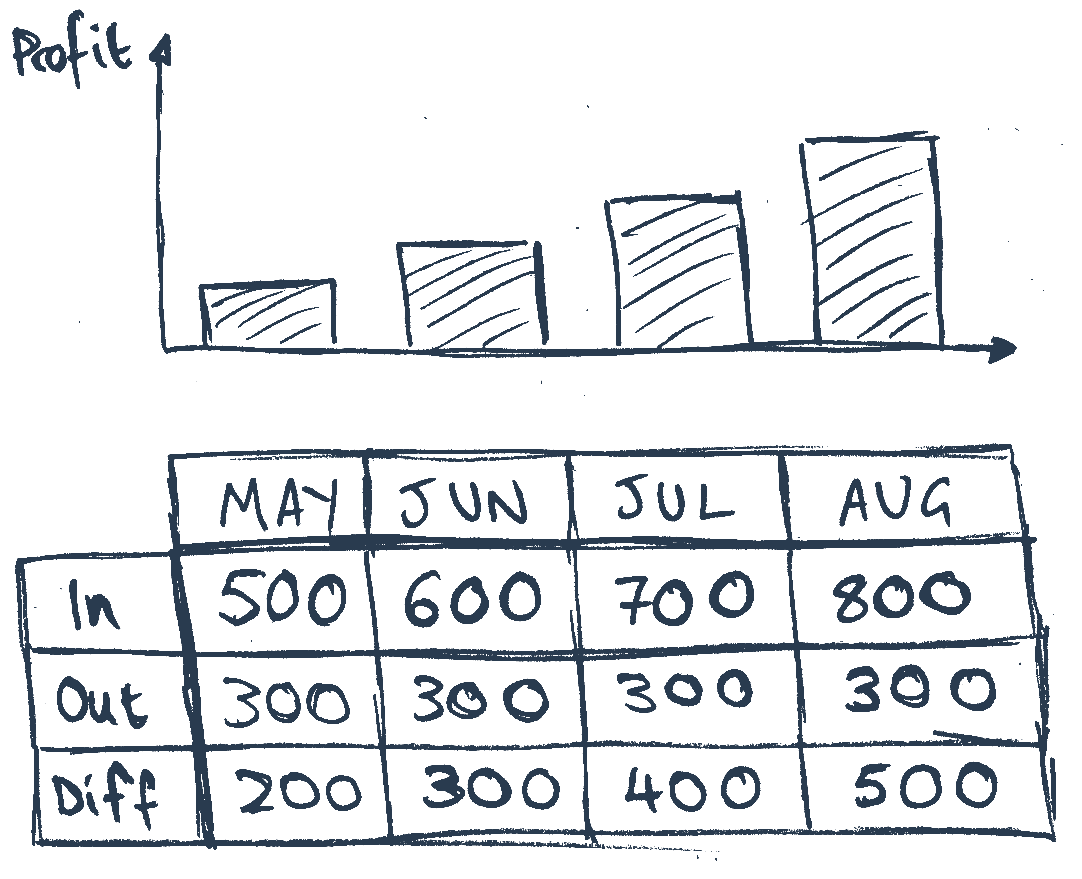 Profit
MAY JUN JUL AUG
In 500 600 700 800
Out 300 300 300 300
Diff 200 300 400 500